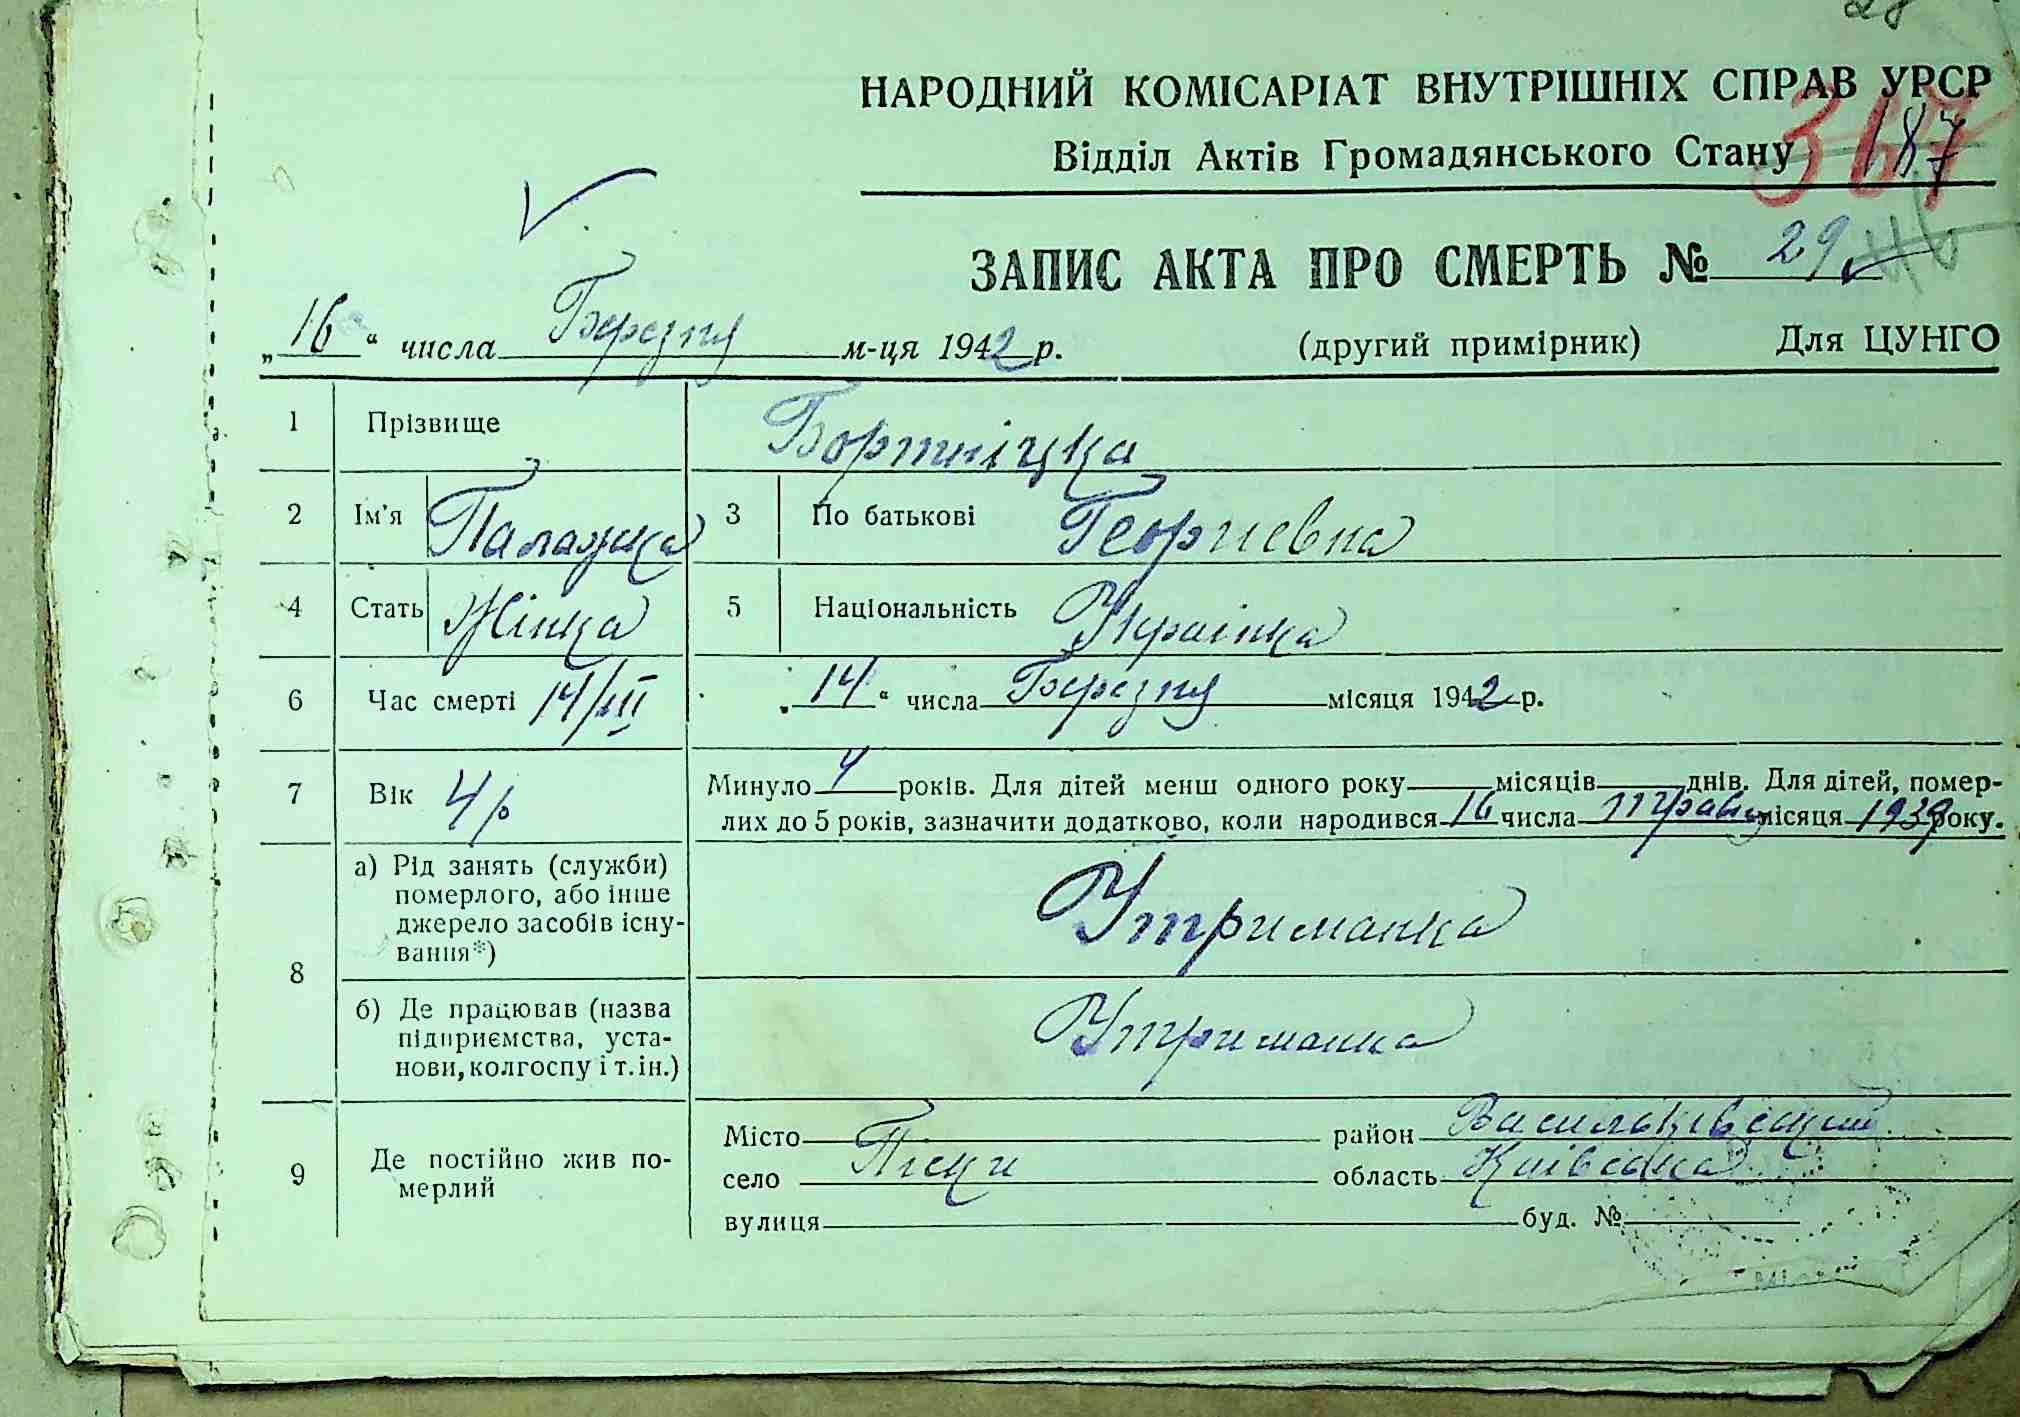 28
НАРОДНИЙ КОМІСАРІАТ ВНУТРІШНІХ СПРАВ УРСР
Відділ Актів Громадянського Стану
367 187
ЗАПИС АКТА ПРО СМЕРТЬ № 29
„16“ числа Березня м-ця 1942 р. (другий примірник) Для ЦУНГО
1 Прізвище Бортніцка
2 Ім'я Палажка 3 По батькові Георгиевна
4 Стать Жінка 5 Національність Украінка
6 Час смерті 14/III „14“ числа Березня місяця 1942 р.
7 Вік 4 р Минуло 4 років. Для дітей менш одного року місяців днів. Для дітей, помер-
лих до 5 років, зазначити додатково, коли народився 16 числа Травня місяця 1939 року.
8 а) Рід занять (служби)
померлого, або інше
джерело засобів існу-
вання*) Утриманка
б) Де працював (назва
підприємства, уста-
нови, колгоспу і т. ін.) Утриманка
9 Де постійно жив по-
мерлий
Місто район Васильківський
село Піски область Київска
вулиця буд. №